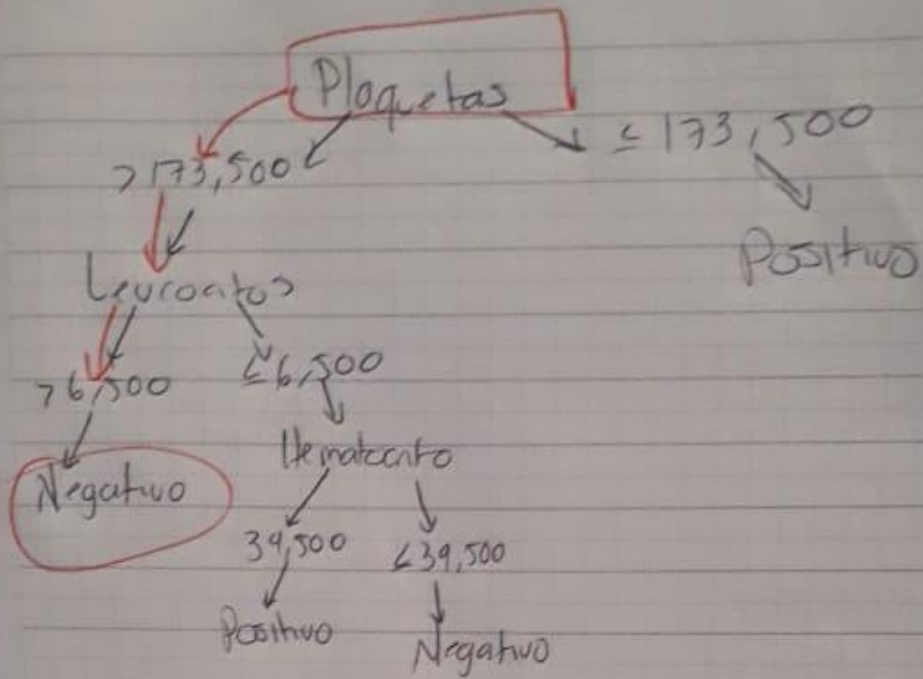 Plaquetas
>173,500 ≤ 173,500
Positivo
Leucocitos
>6,500 ≤6,500
Hematocrito
Negativo
39,500 ≤39,500
Positivo Negativo